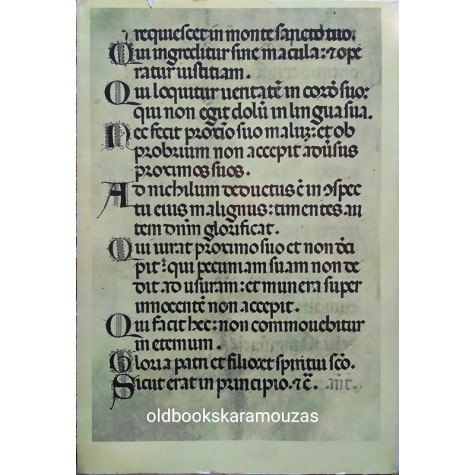 requiescet in monte sancto tuo.
Qui ingreditur sine macula: ⁊ ope
ratur iustitiam.
Qui loquitur ueritatē in cord̄ suo:
qui non egit dolū in lingua sua.
Nec fecit proxīo suo malū: et ob
probrium non accepit adūsus
proximos suos.
Ad nichilum deductus ē in ꝯspe
ctu eius malignus: timentes au
tem dnm̄ glorificat.
Qui iurat proximo suo et non deci
pit: qui pecuniam suam non de
dit ad usuram: et munera super
innocentē non accepit.
Qui facit hec: non commouebitur
in eternum.
Gloria patri et filio: et spiritui sc̄o.
Sicut erat in principio. ⁊c̄.
oldbookskaramouzas